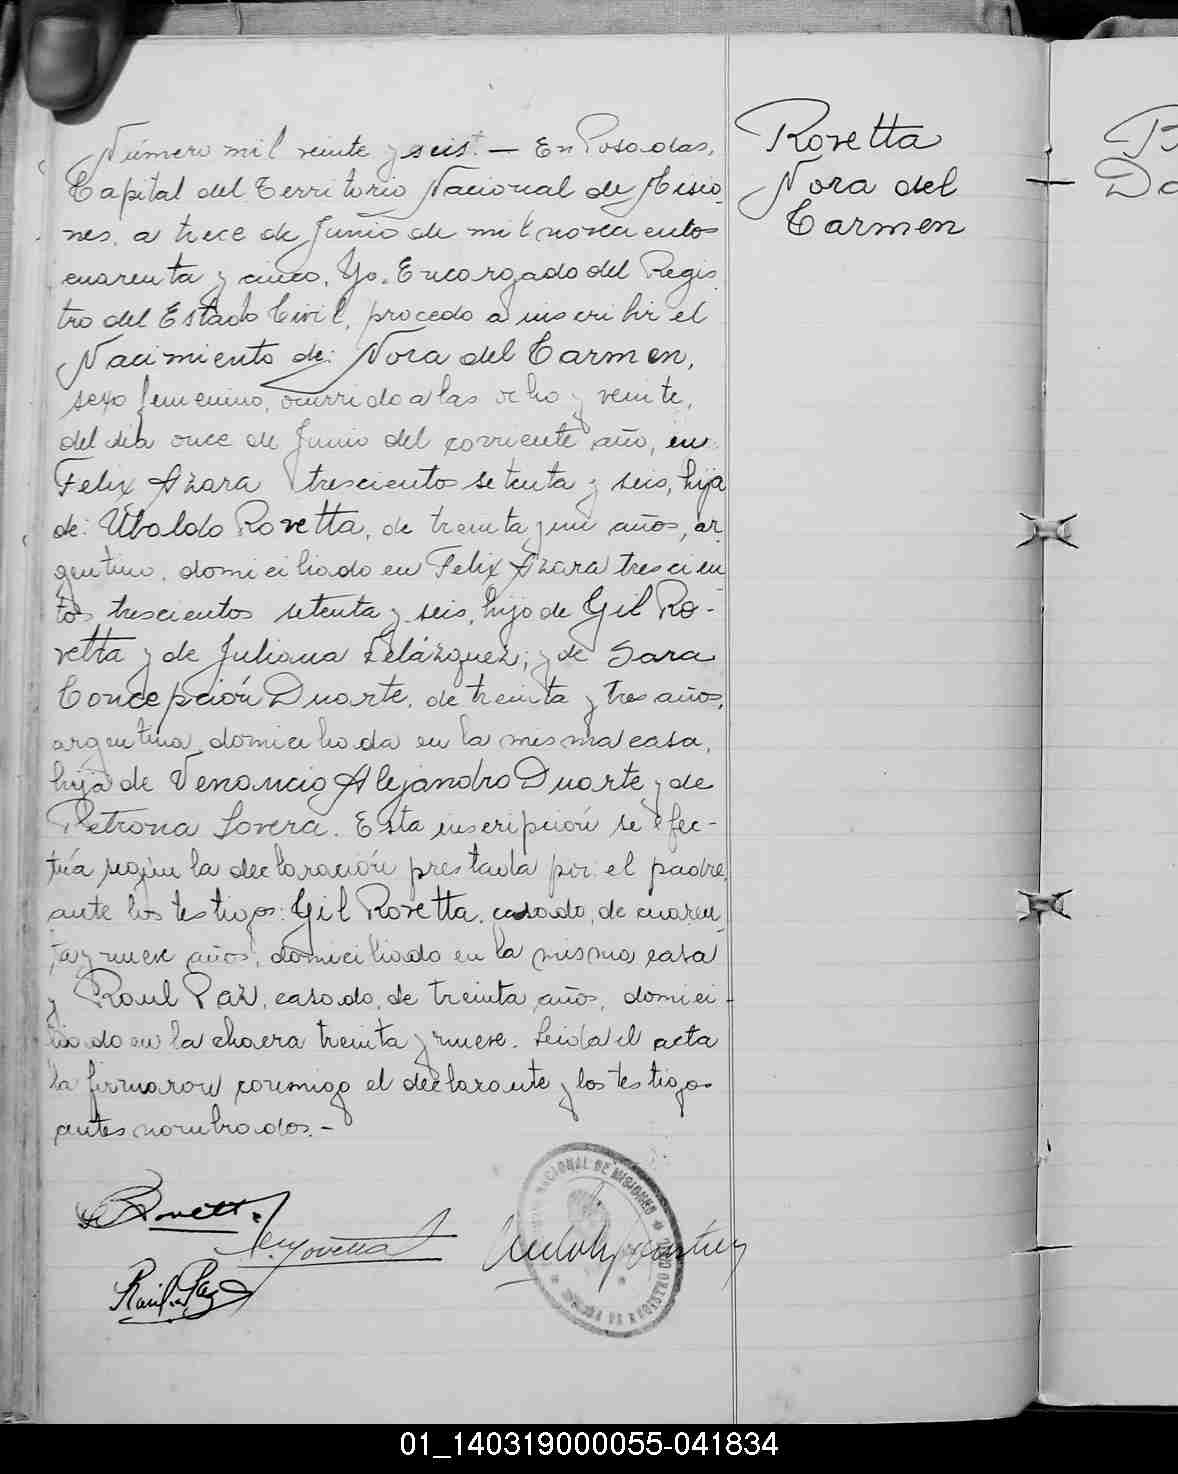 Número mil veinte y seis. — En Posadas,
Capital del Territorio Nacional de Misio-
nes, a trece de Junio de mil novecientos
cuarenta y cinco, Yo, Encargado del Regis-
tro del Estado Civil, procedo a inscribir el
Nacimiento de: Nora del Carmen,
sexo femenino, ocurrido a las ocho y veinte,
del dia once de Junio del corriente año, en
Felix Azara trescientos setenta y seis, hija
de: Ubaldo Rovetta, de treinta y un años, ar-
gentino, domiciliado en Felix Azara trescien-
tos trescientos setenta y seis, hijo de Gil Ro-
vetta y de Juliana Velázquez; y de Sara
Concepción Duarte, de treinta y tres años,
argentina, domiciliada en la misma casa,
hija de Venancio Alejandro Duarte y de
Petrona Lovera. Esta inscripción se efec-
túa según la declaración prestada por el padre,
ante los testigos: Gil Rovetta, casado, de cuaren-
ta y nueve años, domiciliado en la misma casa
y Raul Paz, casado, de treinta años, domici-
liado en la chacra treinta y nueve. Leida el acta
la firmaron conmigo el declarante y los testigos
antes nombrados.-
Rovetta
Nora del
Carmen
Rovetta
Rovetta
Raúl Paz
NACIONAL DE MISIONES
01_140319000055-041834